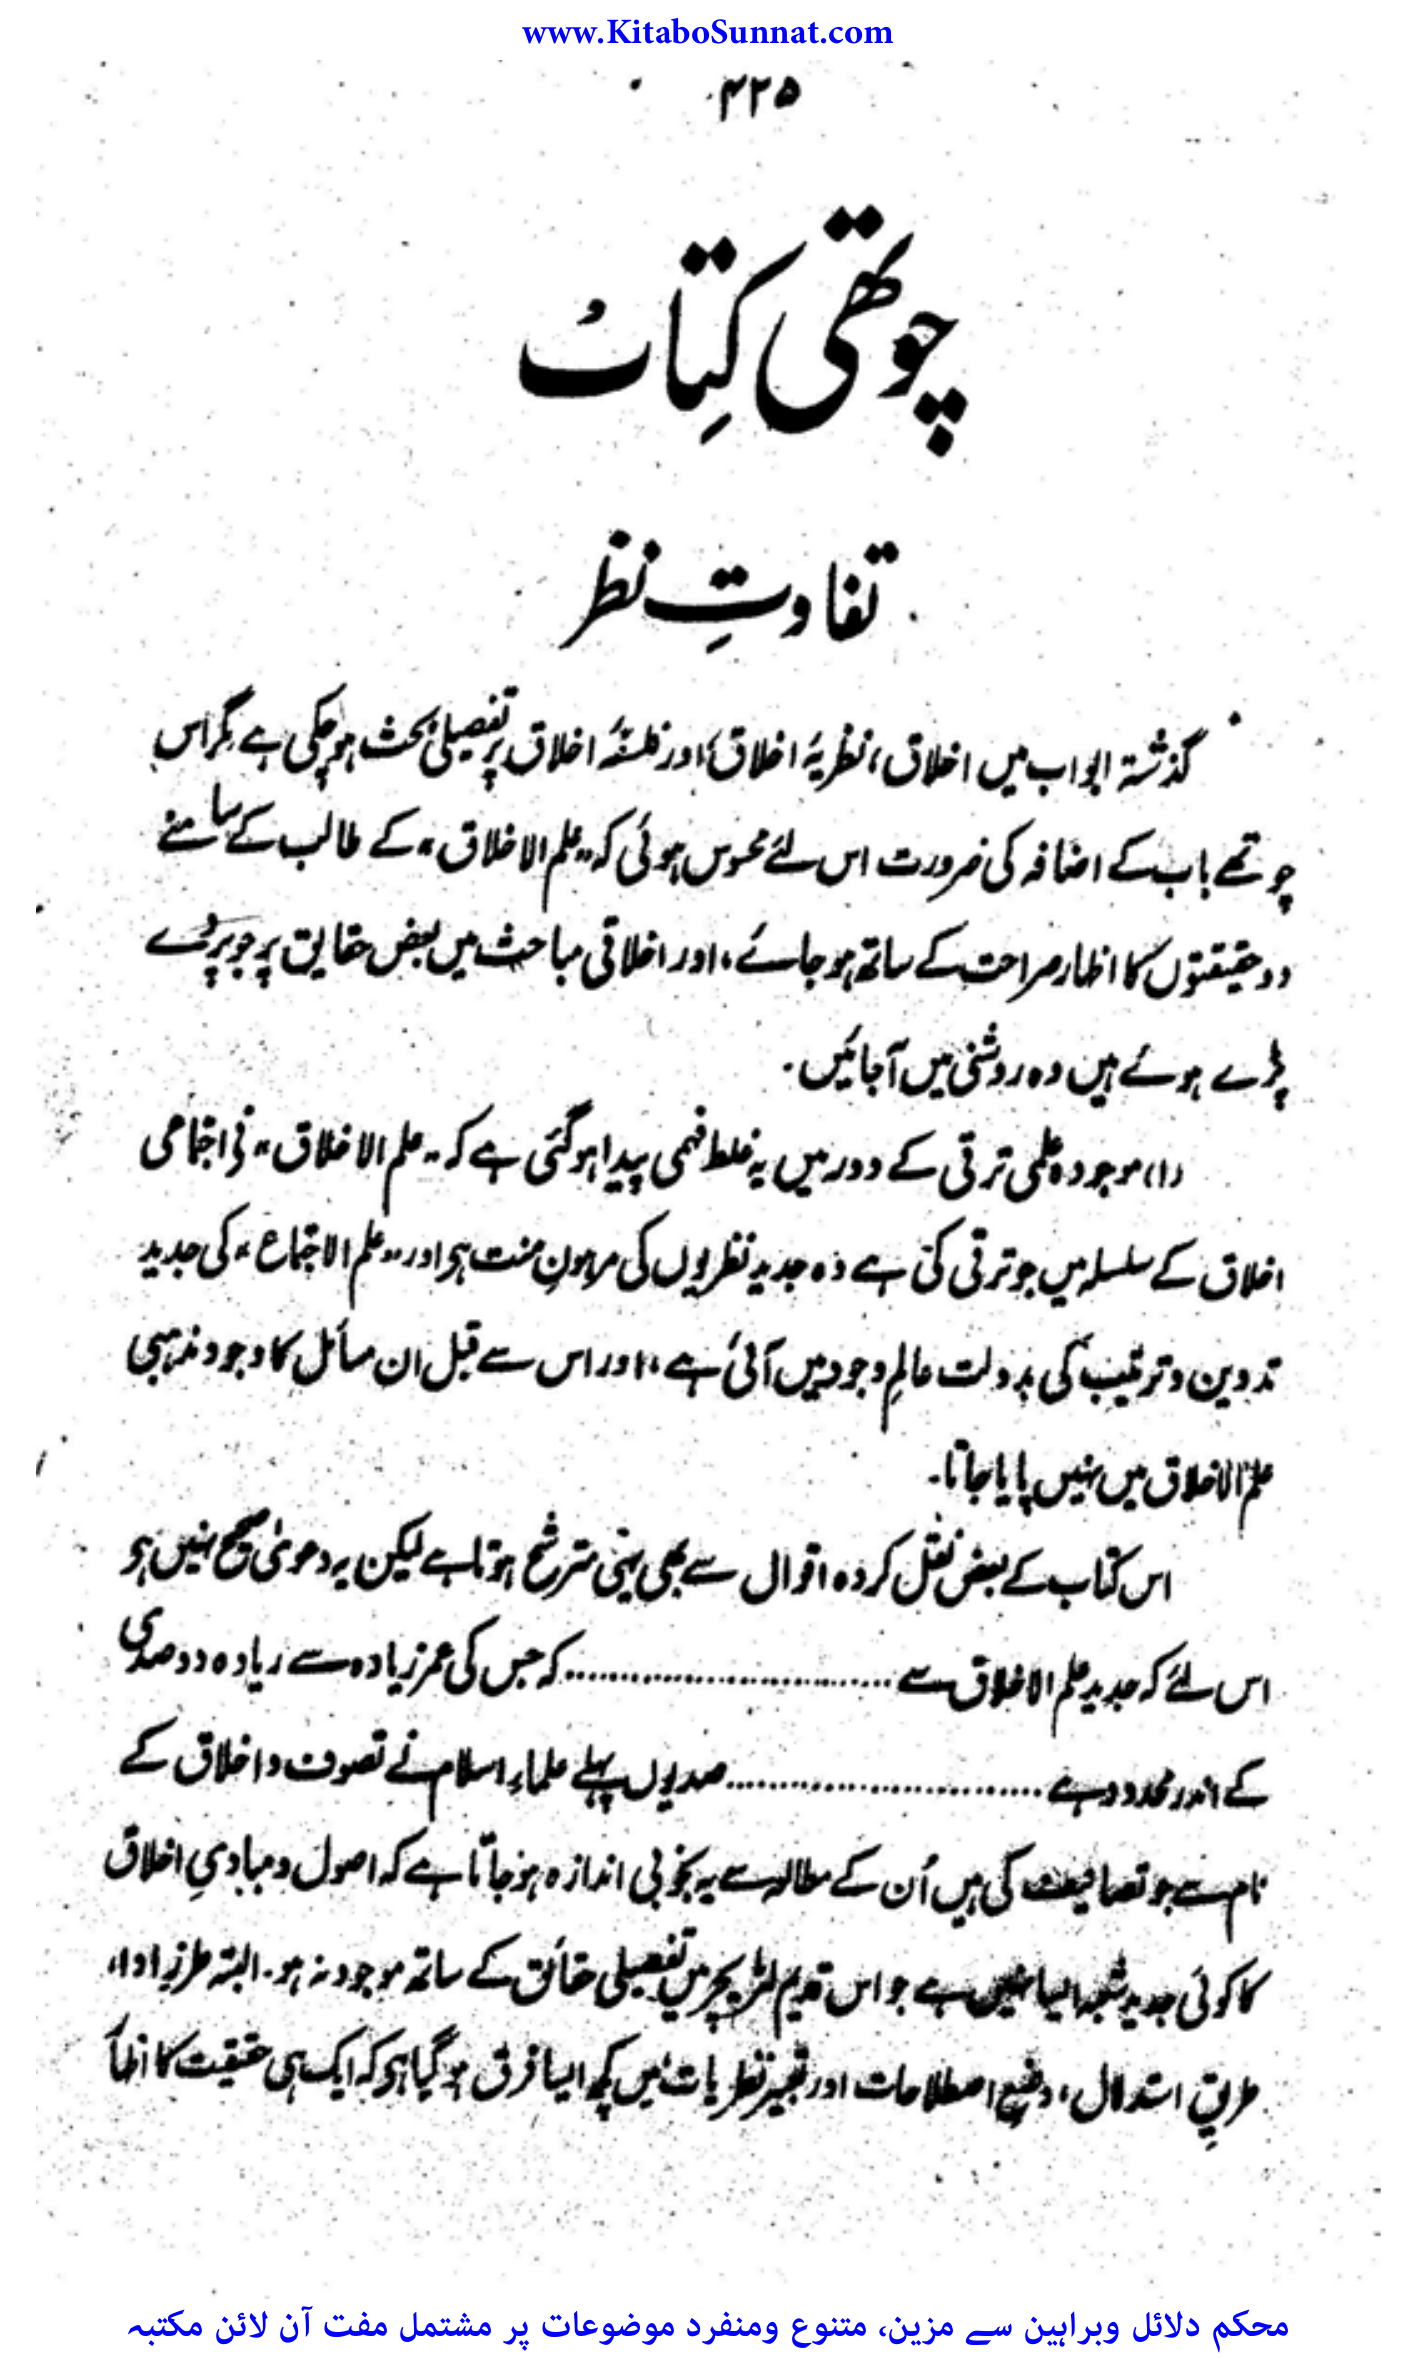 www.KitaboSunnat.com
۴۲۵
چوتھی کتاب
تفاوتِ نظر
گذشتہ ابواب میں اخلاق، نظریۂ اخلاق، اور فلسفۂ اخلاق پر تفصیلی بحث ہو چکی ہے مگر اس
چوتھے باب کے اضافہ کی ضرورت اس لئے محسوس ہوئی کہ "علم الاخلاق" کے طالب کے سامنے
دو حقیقتوں کا اظہار صراحت کے ساتھ ہو جائے، اور اخلاقی مباحث میں بعض حقایق پر جو پردے
پڑے ہوئے ہیں وہ روشنی میں آجائیں۔
(۱) موجودہ علمی ترقی کے دور میں یہ غلط فہمی پیدا ہو گئی ہے کہ "علم الاخلاق" نے اجتماعی
اخلاق کے سلسلہ میں جو ترقی کی ہے وہ جدید نظریوں کی مرہونِ منت ہے اور "علم الاجتماع" کی جدید
تدوین و ترتیب کی بدولت عالمِ وجود میں آئی ہے، اور اس سے قبل ان مسائل کا وجود مذہبی
علم الاخلاق میں نہیں پایا جاتا۔
اس کتاب کے بعض نقل کردہ اقوال سے بھی یہی مترشح ہوتا ہے لیکن یہ دعویٰ صحیح نہیں ہے
اس لئے کہ جدید علم الاخلاق سے .............................. کہ جس کی عمر زیادہ سے زیادہ دو صدی
کے اندر محدود ہے .............................. صدیوں پہلے علماءِ اسلام نے تصوف و اخلاق کے
نام سے جو تصانیف کی ہیں اُن کے مطالعہ سے یہ بخوبی اندازہ ہو جاتا ہے کہ اصول و مبادیِ اخلاق
کا کوئی جدید شعبہ ایسا نہیں ہے جو اس قدیم لٹریچر میں تفصیلی حقائق کے ساتھ موجود نہ ہو۔ البتہ طرزِ ادا،
طریقِ استدلال، وضعِ اصطلاحات اور تعبیرِ نظریات میں کچھ ایسا فرق ہو گیا ہے کہ ایک ہی حقیقت کا اظہار
محکم دلائل وبراہین سے مزین، متنوع ومنفرد موضوعات پر مشتمل مفت آن لائن مکتبہ